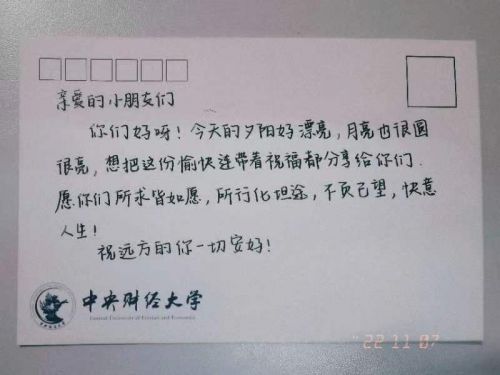 亲爱的小朋友们
你们好呀！今天的夕阳好漂亮，月亮也很圆
很亮，想把这份愉快连带着祝福都分享给你们．
愿你们所求皆如愿，所行化坦途，不负己望，快意
人生！
祝远方的你一切安好！
中央财经大学
Central University of Finance and Economics
22 11 07